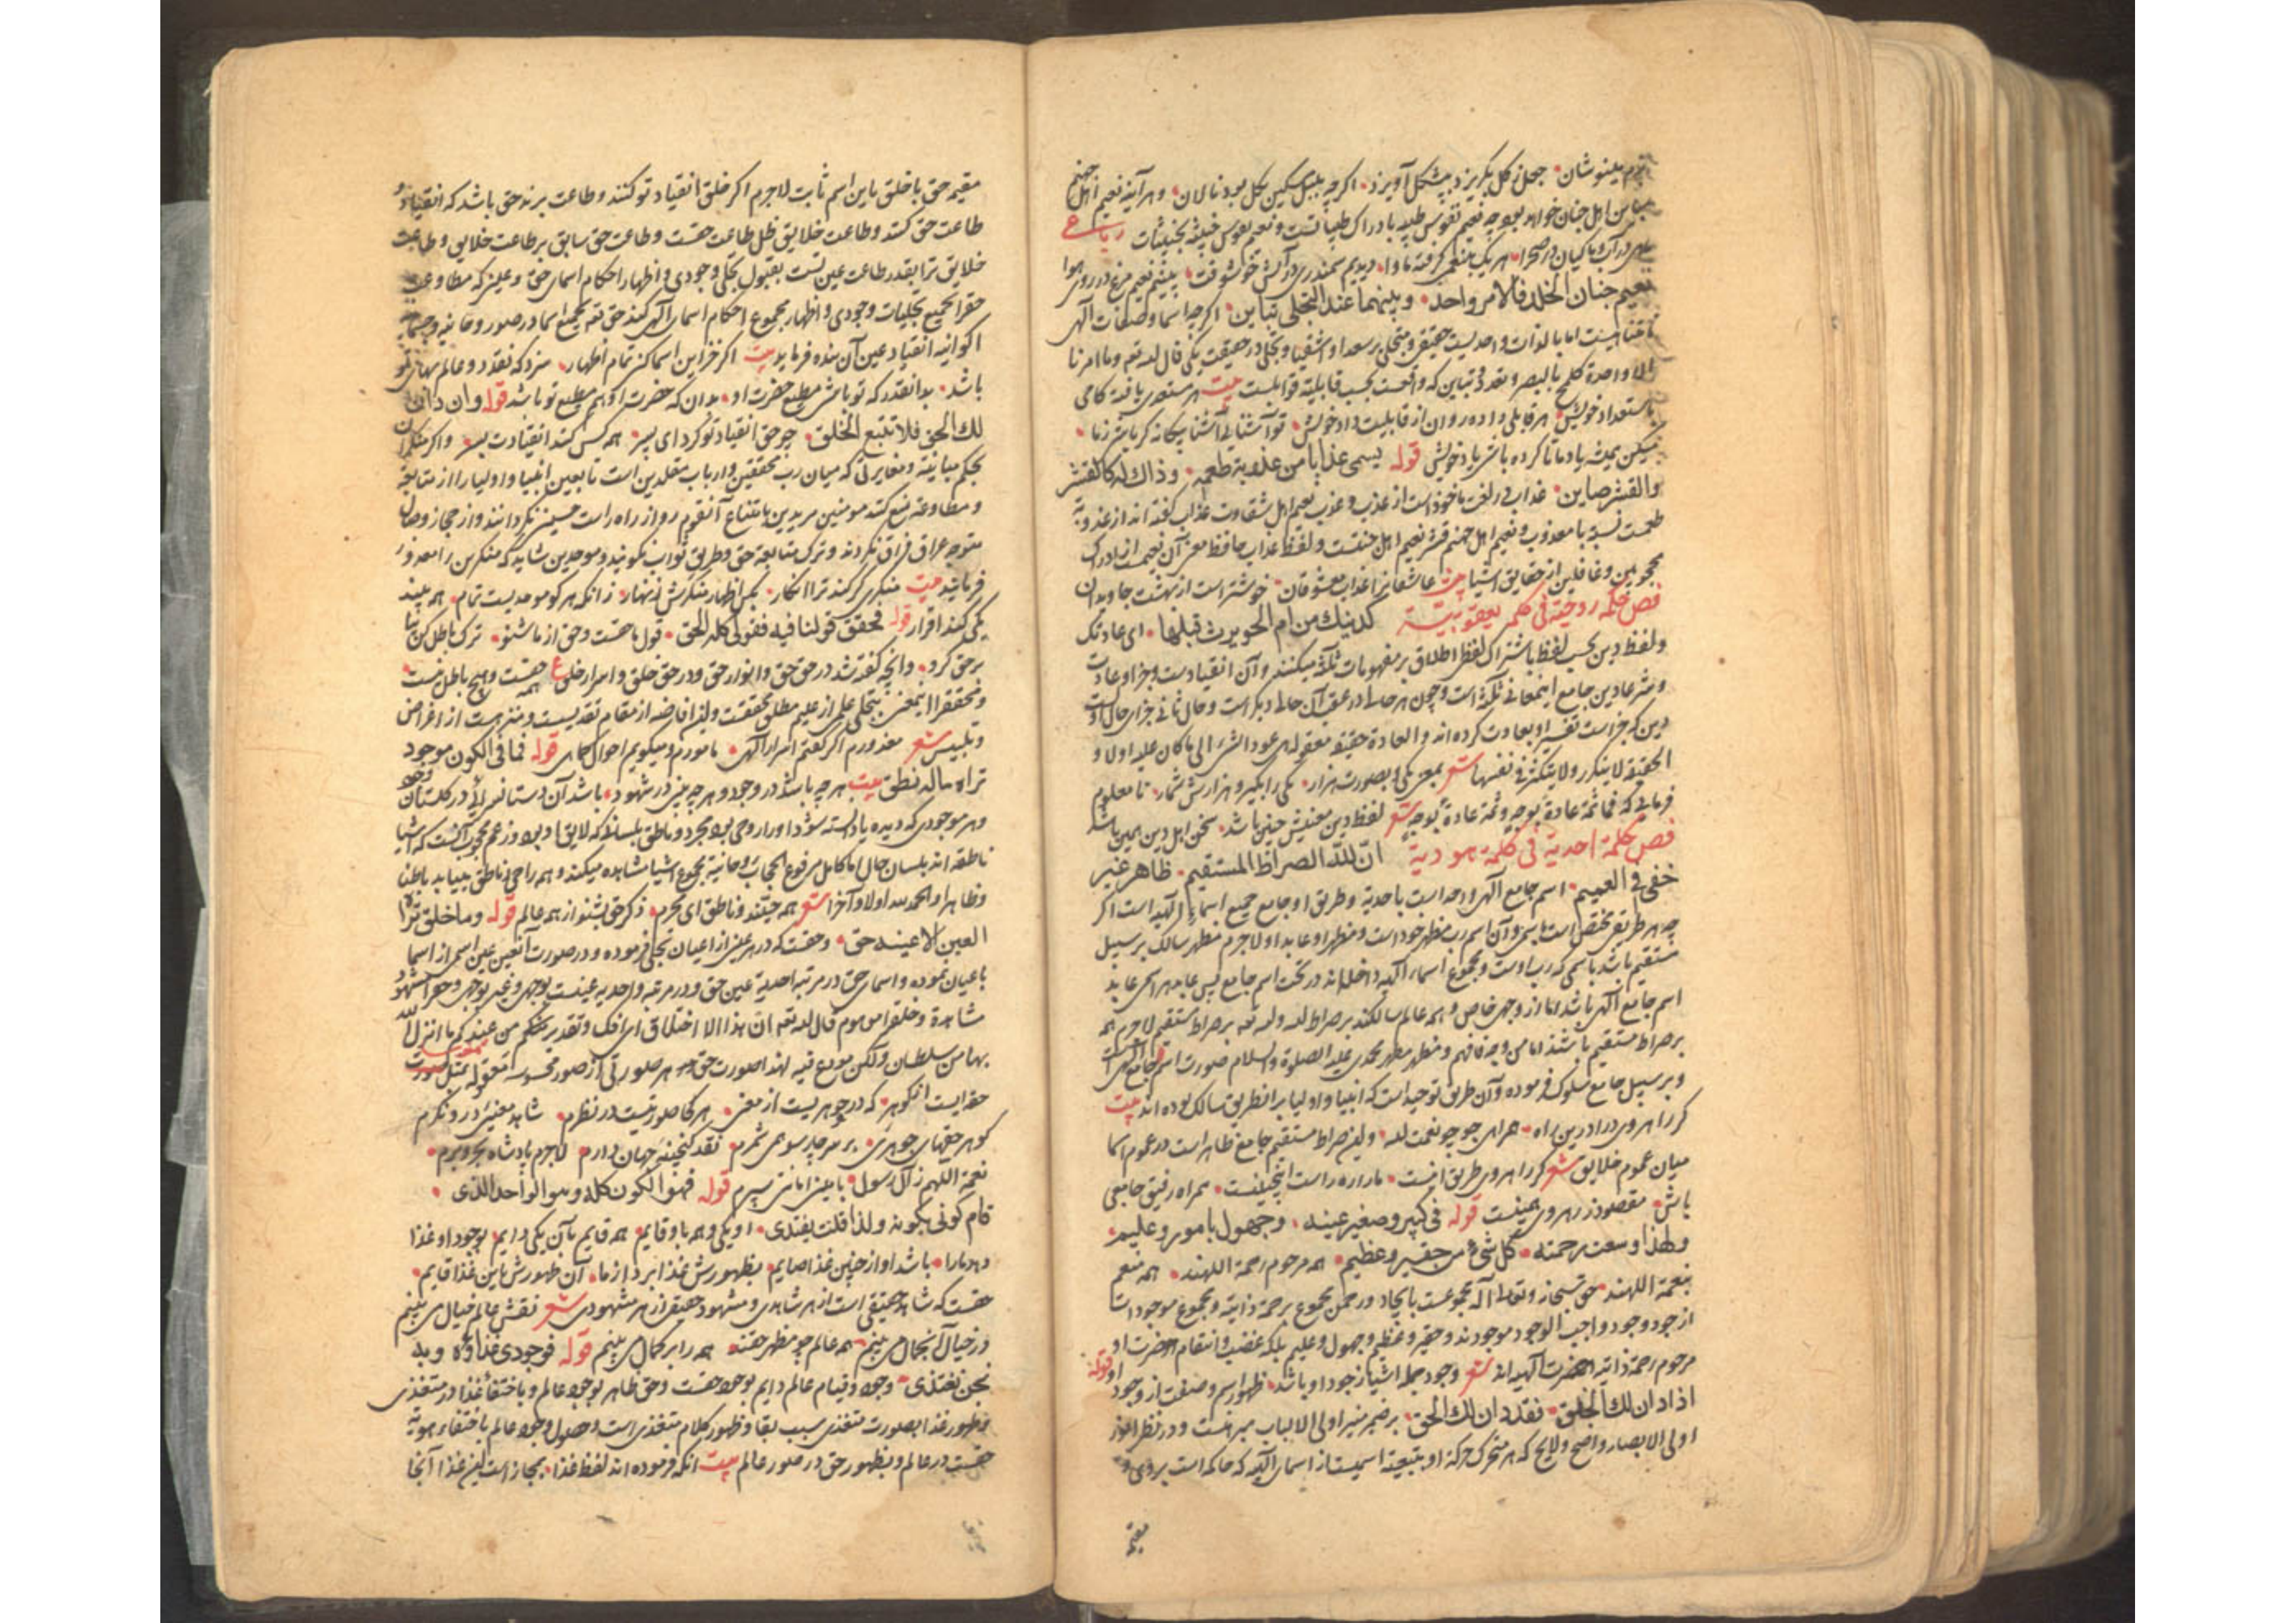 بینوشان جعل ز کل بگریزد بپشکل آویزد اکرچه بلبل مسکین بکل بود نالان و هرآینه نعیم اهل جهنم
مباین اهل جنان خواهد بود چه نعیم نفوس طیبه بادراک طیباتست و نعیم نفوس خبیثه بخبیثات رباعی
ماهی در آب و ماکیان در صحرا هر یک بنعیمی کرفته ماوا دیدیم سمندری در آتش خوشوقت نعیم مرغ در روی هوا
نعیم جنان الخلد فالامر واحد وبینهما عند التجلی تباین اکرچه اسما و صفات الهی
نامتناهیست اما بالذات واحدیست حقیقی و متجلی بر سعدا و اشقیا و تجلی در حقیقت یکی قال الله تعه وما امرنا
الا واحدة کلمح بالبصر و تعدد و تباین که واقعست بحسب قابلیة قوابلست بیت هر مستعدی یافته کامی
باستعداد خویش هر قابلی داده روان از قابلیت داد خویش تو آشنایی آشنا بیکانه کر باشد ز ما
یاد ما تا کرده باشی یاد خویش قوله یسمی عذابا من عذوبة طعمه وذاک له کالقشر
والقشر صاین عذاب در لغت ماخوذ است از عذب و عذب نعیم اهل شقاوت عذاب کفته اند از عذوبة
طعمست نسبة با معذوب و نعیم اهل جهنم قشر نعیم اهل جنتست و لفظ عذاب حافظ معنی آن نعیمست از ادراک
محجوبین و غافلین از حقایق اشیا بیت عاشقانرا عذاب معشوقان خوشتر است از بهشت جاویدان
فص حکمة روحیة فی کلمة یعقوبیة کدینک من ام الحویرث قبلها ای عادتک
و لفظ دین بحسب لفظ باشتراک لفظ اطلاق بر مفهومات ثلثه میکنند و آن انقیاد است و جزا و عادت
و سر عادین جامع این معانی ثلثه است و چون هر حالی در عقب آن حالی دیکر است و حال ثانی جزای حال اول
دین که جزاست تفسیر او بعادت کرده اند والعادة حقیقة معقوله هی عود الشئ الی ما کان علیه اولا و
الحقیقة لا یتکرر ولا یتکثر فی نفسها شعر بمعنی یکی و بصورت هزار یکی را بکیر و هزارش شمار تا معلوم
فرمایی که فما ثمة عادة بوجه وثمة عادة بوجه شعر لفظ دین معنیش چنین باشد سخن اهل دین همین باشد
فص حکمة احدیة فی کلمة هودیة ان لله الصراط المستقیم ظاهر غیر
خفی فی العمیم اسم جامع الهی واحد است باحدیة و طریق او جامع جمیع اسماء الهیه است اکر
چه هر طریقی مختص است باسمی و آن اسم رب مظهر خود است و مظهر او عابد او لاجرم مظهر سالک بر سبیل
مستقیم باشد باسمی که رب اوست و مجموع اسماء الهیه داخل اند در تحت اسم جامع پس عابد هر اسمی عابد
اسم جامع الهی باشد اما از وجهی خاص و همه عالم سالکند بر صراط الله و لله تعه بر صراط مستقیم لاجرم همه
بر صراط مستقیم باشند اما من وجه فافهم و مظهر مطهر محمدی علیه الصلوة والسلام صورت اسم جامع الهی است
و بر سبیل جامع سلوک فرموده و آن طریق توحید است که انبیا و اولیا بر انطریق سالک بوده اند بیت
کر راهروی درآ درین راه همراهی جو چو نعمت الله و این صراط مستقیم جامع ظاهر است در عموم اسما
میان عموم خلایق شعر کر راهروی طریق اینست ما را ره راست اینچنینست همراه رفیق جامعی
باش مقصود ز رهروی همینست قوله فی کبیر وصغیر عینه وجهول بامور وعلیم
ولهذا وسعت رحمته کل شیء من حقیر وعظیم همه مرحوم رحمة اللهند همه منعم
بنعمة اللهند حق سبحانه و تعالی اله مجموعست بایجاد و رحمن مجموع برحمة ذاتیة و مجموع موجودات
از جود وجود واجب الوجود موجودند و حقیر و عظیم و جهول و علیم بلکه غضب و انتقام حضرت او
مرحوم رحمة ذاتیه حضرت الهیه اند شعر وجود جمله اشیا ز جود او باشد ظهور اسم و صفت از وجود او قوله
اذا دان لک الخلق فقد دان لک الحق بر ضمیر منیر اولی الالباب مبرهنست و در نظر انور
اولی الابصار واضح و لایح که هر متحرک حرکة او بتبعیة اسمیست از اسمای الهیه که حاکمه است بر وی و
مقیمه
مقیمه حق با خلق باین اسم ثابت لاجرم اکر خلق انقیاد تو کنند و طاعت برند حق باشد که انقیاد و
طاعت حق کنند و طاعت خلایق ظل طاعت حقست و طاعت حق سابق بر طاعت خلایق و طاعت
خلایق ترا بقدر طاعت عین تست بقبول تجلی وجودی و اظهار احکام اسمای حق و عینی که مطاوعت
حقرا بجمیع تجلیات وجودی و اظهار مجموع احکام اسمای الهی کند حق تعه بجمیع اسما در صور روحانیه و جسمانیه
اکوانیه انقیاد عین آن بنده فرماید بیت اکر خزاین اسما کنی تمام اظهار سزد که نقد دو عالم بهای تو
باشد بدانقدر که تو باشی مطیع حضرت او بدان که حضرت او هم مطیع تو باشد قوله وان دان
لک الحق فلا تتبع الخلق چو حق انقیاد تو کرد ای پسر همه کس کند انقیادت بسر و اکر منکران
بحکم مباینة و مغایرتی که میان رب محققین و ارباب مقلدین است تابعین انبیا و اولیا را از متابعة
و مطاوعة منع کنند مومنین مریدین بامتناع آنقوم رو از راه راست حسینی نکردانند و از حجاز وصال
متوجه عراق فراق نکردند و ترک متابعة حق و طریق ثواب نکویند و موحدین شاید که منکرین را معذور
فرمایند بیت منکری کر کند ترا انکار مکن اظهار منکرش زنهار زانکه هر کو موحدیست تمام همه بیند
یکی کند اقرار قوله فحقق قولنا فیه فقولی کله الحق قول ما حقست و حق از ما شنو ترک باطل کن بیا
بر حق کرو و آنچه کفته شد در حق حق و انوار حق و در حق خلق و اسرار خلق ع همه حقست و هیچ باطل نیست
و محققرا این معنی بتجلی علمی از علیم مطلق محققست و این افاضه از مقام تقدیسست و منزهست از اغراض
و تلبیس شعر معذورم اکر کفتم اسرار الهی مامورم و میکویم احوال کماهی قوله فما فی الکون موجود
تراه ماله نطق بیت هر چه باشد در وجود و هر چه بینی در شهود باشد آن دستانسرایی در کلستان وجود
و هر موجودی که دیده یا دانسته شود او را روحی بود مجرد و ناطق بلسانی که لایق او بود و زعم محجوب آنست که اشیا
ناطقه اند بلسان حال اما کامل مرفوع الحجاب روحانیة مجموع اشیا مشاهده میکند و همه را حی و ناطق میبیند باطنا
و ظاهرا والحمد لله اولا وآخرا شعر همه حیند و ناطق ای محرم ذکر حق بشنو از همه عالم قوله وما خلق تراه
العین الا عینه حق و حقست که در هر عینی از اعیان تجلی فرموده و در صورت آن عین عین اسمی از اسما
باعیان نموده و اسمای حق در مرتبه احدیة عین حق و در مرتبه واحدیه عینست بوجهی و غیر بوجهی و حق مشهود
مشاهدة و خلق اسم موهوم قال الله تعه ان هذا الا اختلاق ای افک و تقدیر منکم من عندکم ما انزل الله
بها من سلطان ولکن مودع فیه لهذا صورت حق هر صورتی از صور محسوسه معقوله بیت
حقه ایست انکوهر که در جوهریست از معنی هر کجا صورتیست در نظرم شاهد معنیی درو نکرم
کوهر حقهای جوهری بر سر چارسو همی شمرم نقد کنجینه جهان دارم لاجرم پادشاه بحر و برم
نعمة اللهم ز آل رسول با چنین امانتی سپرم قوله فهو الکون کله وهو الواحد الذی
قام کونی بکونه ولذا قلت یغتدی او یکی و همه باو قایم همه قایم بآن یکی دایم بوجود او غذا
دهد ما را باشد او از چنین غذا صایم بظهورش غذا برد از ما آن ظهورش باین غذا قایم
حقست که شاهد حقیقی است از هر شاهدی و مشهود حقیقی از هر مشهودی شعر نقش عالم خیال می بینم
در خیال آنجمال می بینم همه عالم چو مظهر حقند همه را بر کمال می بینم قوله فوجودی غذاؤه وبه
نحن نغتذی وجود و قیام عالم دایم بوجود حقست و حق ظاهر بوجود عالم و باختفاء غذا در متغذی
و ظهور غذا بصورت متغذی سبب بقا و ظهور کلام متغذی است و حصول وجود عالم باختفاء هویة
حقست در عالم و بظهور حق در صور عالم بیت انکه فرموده اند لفظ غذا مجاز است این غذا آنجا